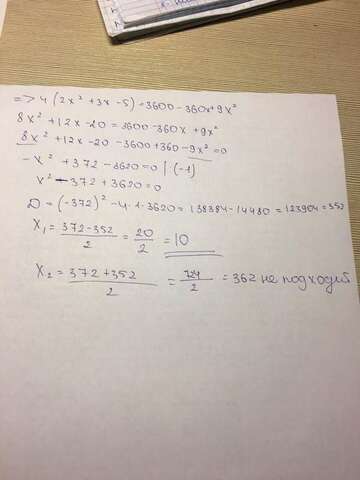 => 4(2x² + 3x - 5) = 3600 - 360x + 9x²
8x² + 12x - 20 = 3600 - 360x + 9x²
8x² + 12x - 20 - 3600 + 360 - 9x² = 0
-x² + 372 - 3620 = 0 | (-1)
x² - 372 + 3620 = 0
D = (-372)² - 4·1·3620 = 138384 - 14480 = 123904 = 352
x₁ = (372 - 352)/2 = 20/2 = 10
x₂ = (372 + 352)/2 = 724/2 = 362 не подходий